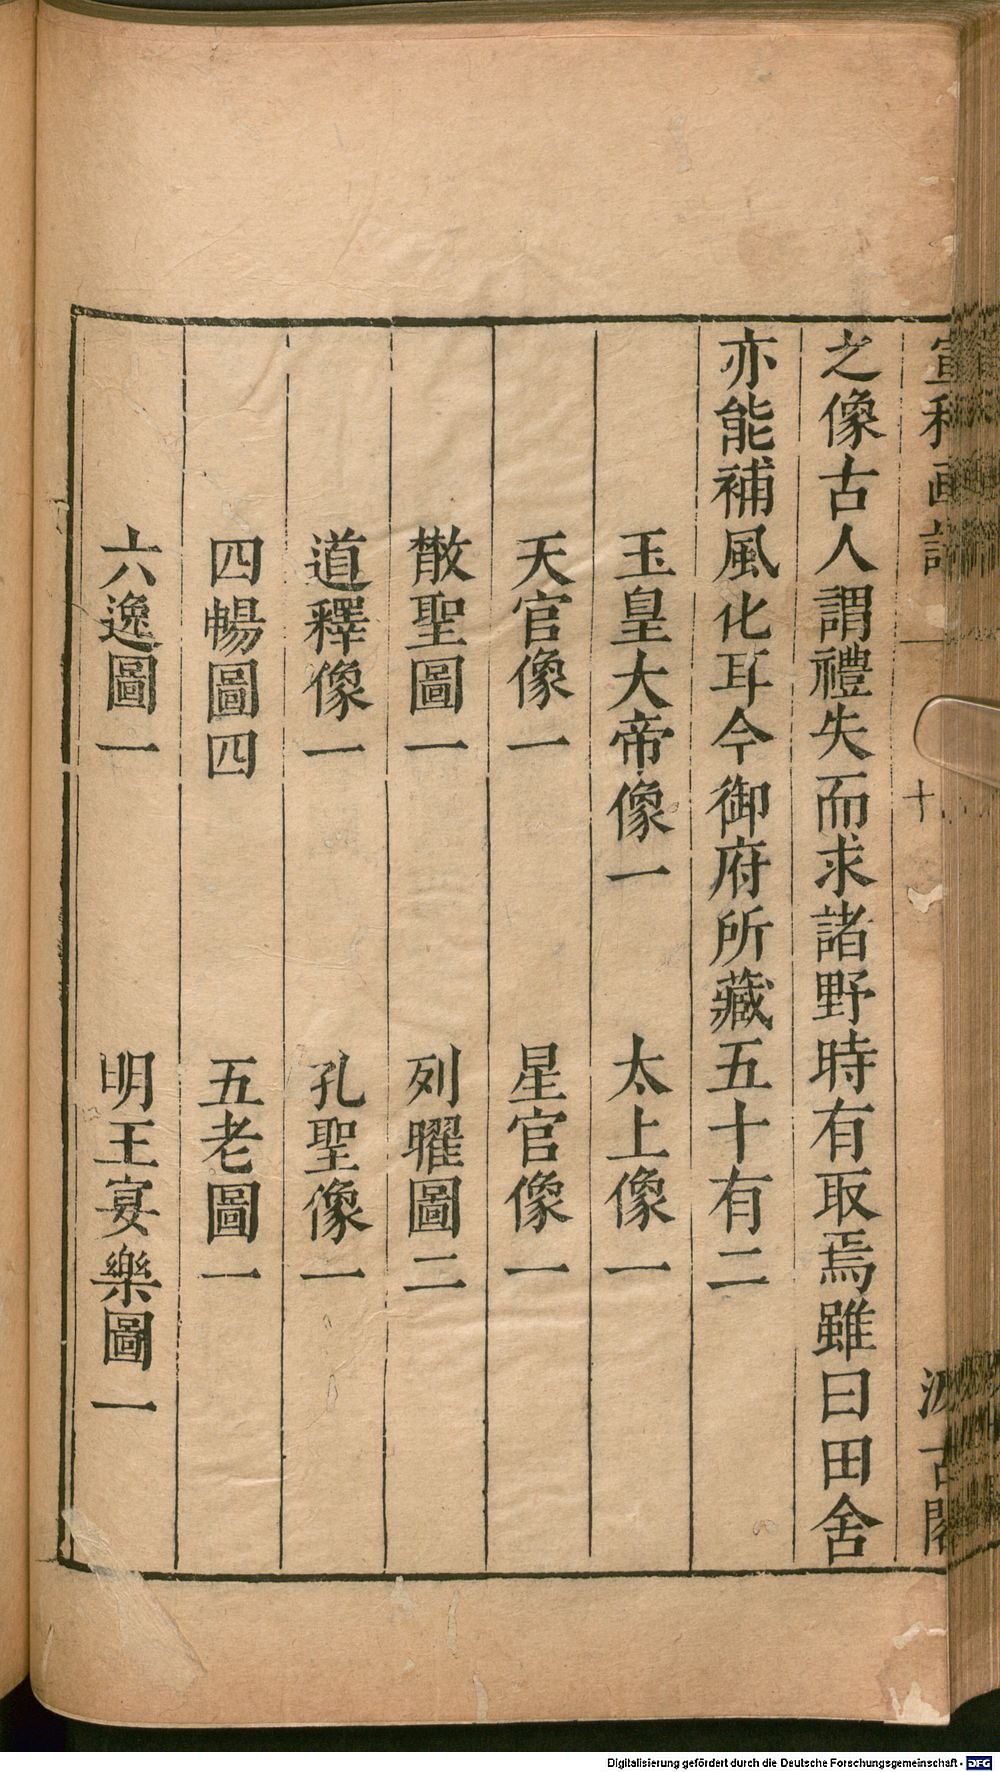 宣和画譜 十 汲古閣
之像古人謂禮失而求諸野時有取焉雖曰田舍
亦能補風化耳今御府所藏五十有二
玉皇大帝像一 太上像一
天官像一 星官像一
散聖圖一 列曜圖二
道釋像一 孔聖像一
四暢圖四 五老圖一
六逸圖一 明王宴樂圖一
Digitalisierung gefördert durch die Deutsche Forschungsgemeinschaft - DFG